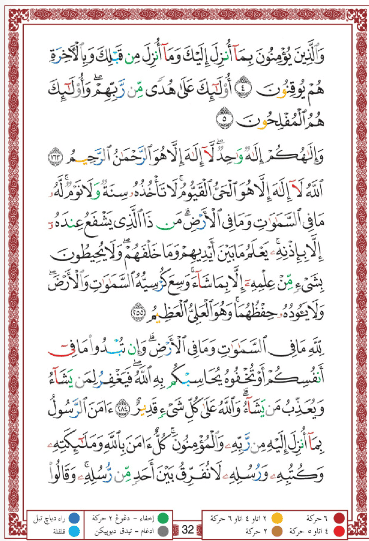 وَالَّذِينَ يُؤْمِنُونَ بِمَآ أُنزِلَ إِلَيْكَ وَمَآ أُنزِلَ مِن قَبْلِكَ وَبِالْآخِرَةِ
هُمْ يُوقِنُونَ ٤ أُولَٰٓئِكَ عَلَىٰ هُدًى مِّن رَّبِّهِمْ ۖ وَأُولَٰٓئِكَ
هُمُ الْمُفْلِحُونَ ٥
وَإِلَٰهُكُمْ إِلَٰهٌ وَاحِدٌ ۖ لَّآ إِلَٰهَ إِلَّا هُوَ الرَّحْمَٰنُ الرَّحِيمُ ١٦٣
اللَّهُ لَآ إِلَٰهَ إِلَّا هُوَ الْحَيُّ الْقَيُّومُ ۚ لَا تَأْخُذُهُ سِنَةٌ وَلَا نَوْمٌ ۚ لَّهُ
مَا فِي السَّمَٰوَٰتِ وَمَا فِي الْأَرْضِ ۗ مَن ذَا الَّذِي يَشْفَعُ عِندَهُ
إِلَّا بِإِذْنِهِ ۚ يَعْلَمُ مَا بَيْنَ أَيْدِيهِمْ وَمَا خَلْفَهُمْ ۖ وَلَا يُحِيطُونَ
بِشَيْءٍ مِّنْ عِلْمِهِ إِلَّا بِمَا شَآءَ ۚ وَسِعَ كُرْسِيُّهُ السَّمَٰوَٰتِ وَالْأَرْضَ ۖ
وَلَا يَئُودُهُ حِفْظُهُمَا ۚ وَهُوَ الْعَلِيُّ الْعَظِيمُ ٢٥٥
لِلَّهِ مَا فِي السَّمَٰوَٰتِ وَمَا فِي الْأَرْضِ ۗ وَإِن تُبْدُوا مَا فِيٓ
أَنفُسِكُمْ أَوْ تُخْفُوهُ يُحَاسِبْكُم بِهِ اللَّهُ ۖ فَيَغْفِرُ لِمَن يَشَآءُ
وَيُعَذِّبُ مَن يَشَآءُ ۗ وَاللَّهُ عَلَىٰ كُلِّ شَيْءٍ قَدِيرٌ ٢٨٤ ءَامَنَ الرَّسُولُ
بِمَآ أُنزِلَ إِلَيْهِ مِن رَّبِّهِ وَالْمُؤْمِنُونَ ۚ كُلٌّ ءَامَنَ بِاللَّهِ وَمَلَٰٓئِكَتِهِ
وَكُتُبِهِ وَرُسُلِهِ لَا نُفَرِّقُ بَيْنَ أَحَدٍ مِّن رُّسُلِهِ ۚ وَقَالُوا
٦ حركة
٢ اتاو ٤ اتاو ٦ حركة
إخفاء - دغوڠ ٢ حركة
راء دباچ تبل
٤ اتاو ٥ حركة
٢ حركة
32
ادغام - تيدق دبوڽيكن
قلقلة